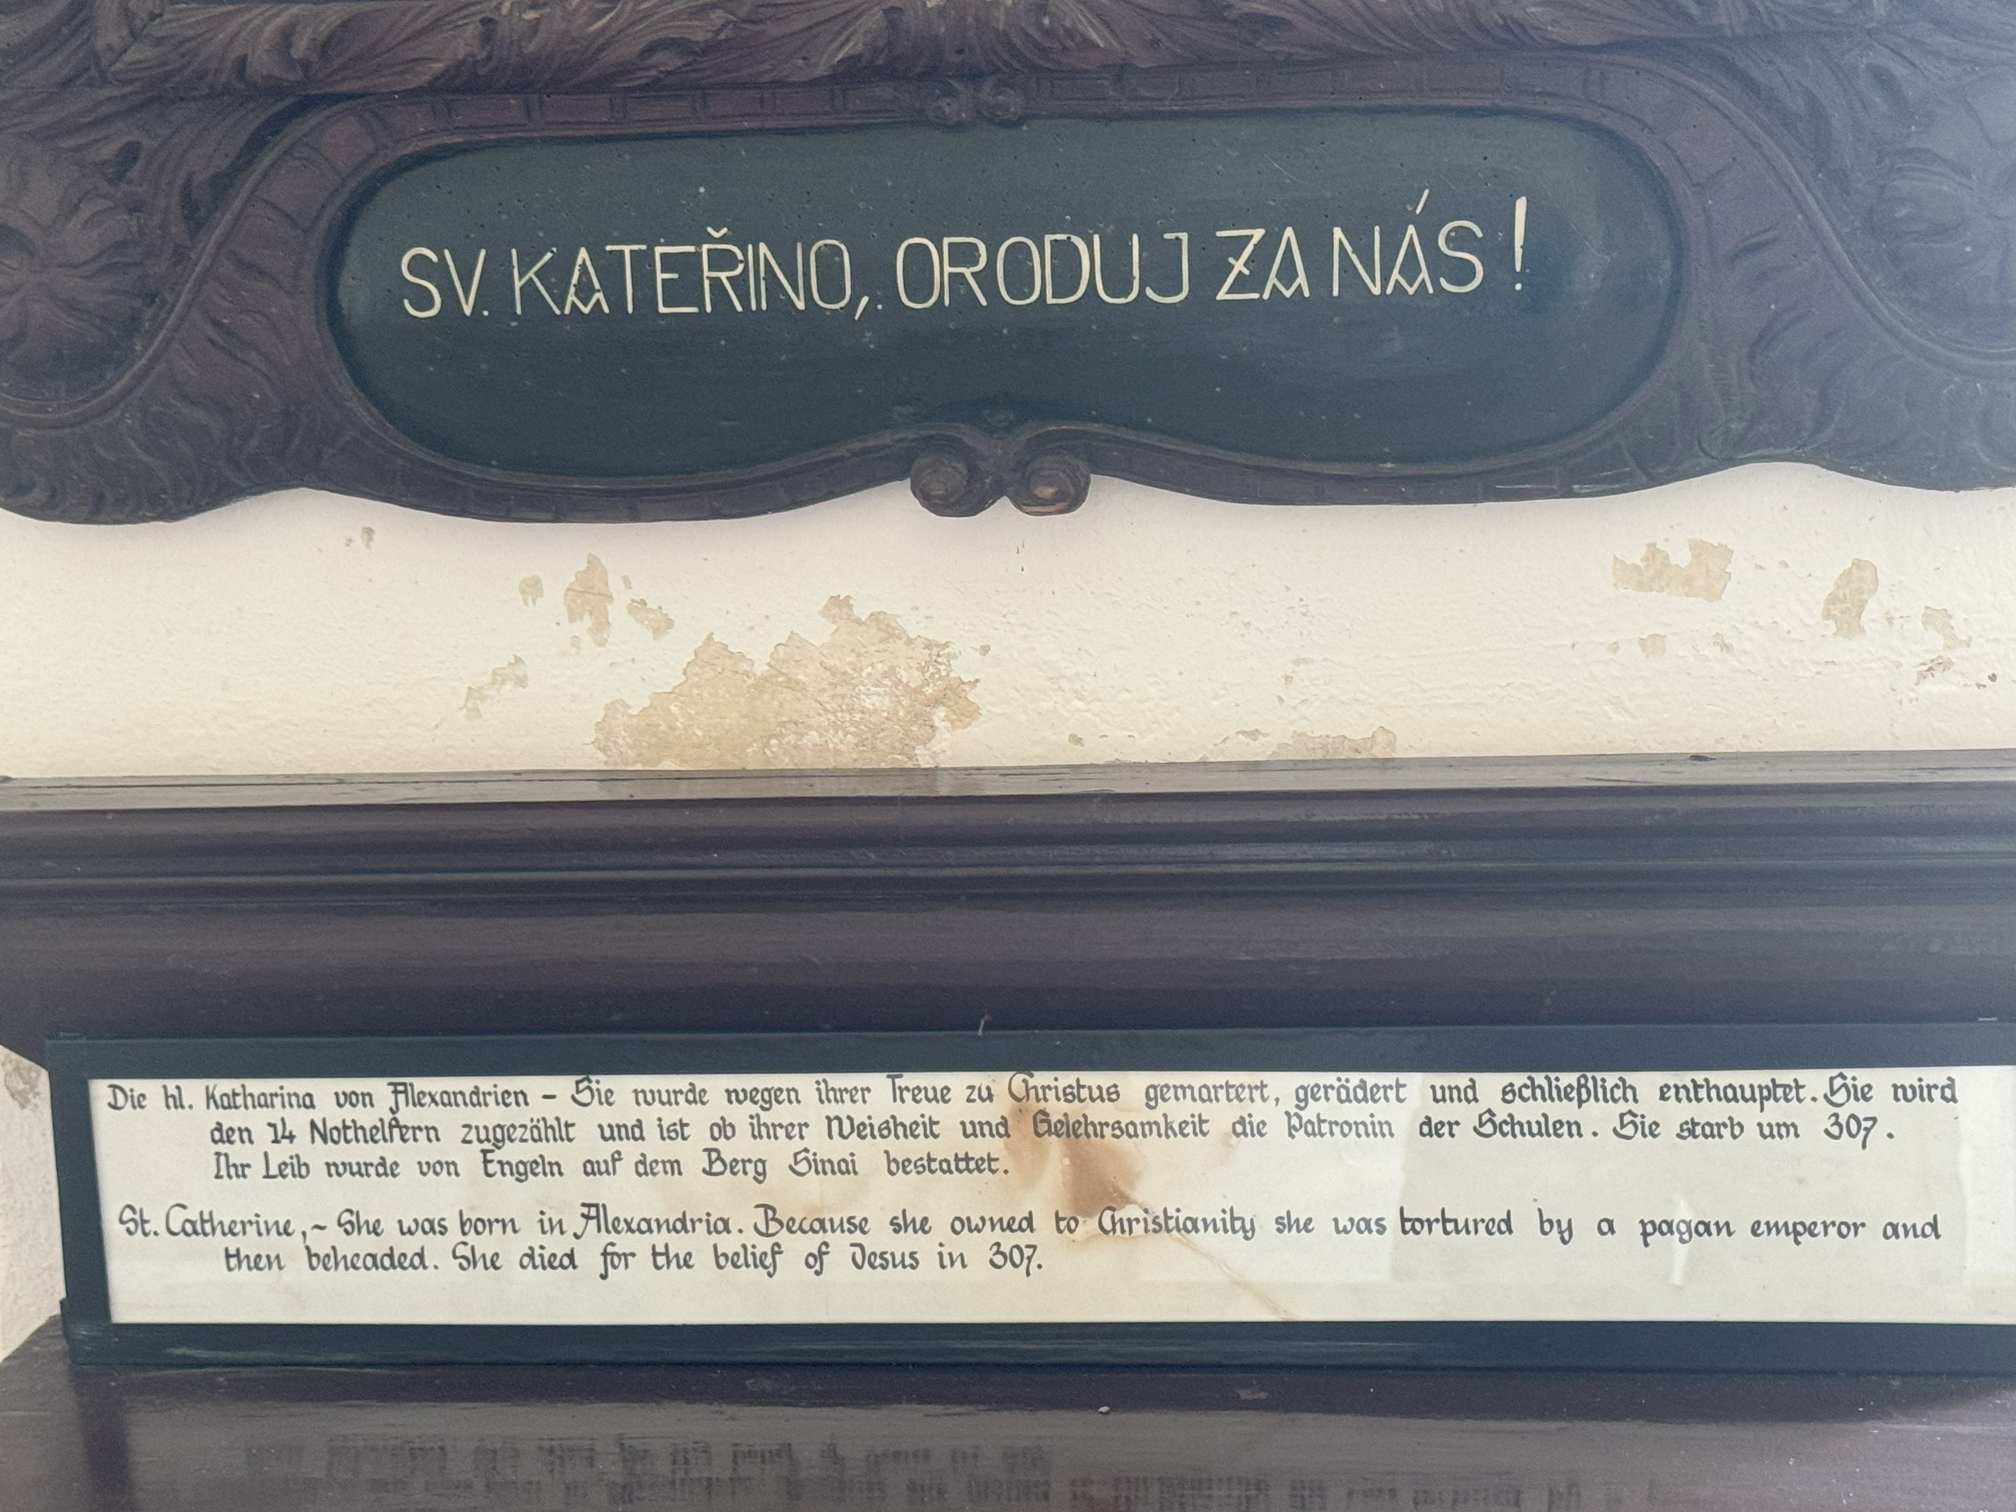 SV. KATEŘINO, ORODUJ ZA NÁS!
Die hl. Katharina von Alexandrien – Sie wurde wegen ihrer Treue zu Christus gemartert, gerädert und schließlich enthauptet. Sie wird
den 14 Nothelfern zugezählt und ist ob ihrer Weisheit und Gelehrsamkeit die Patronin der Schulen. Sie starb um 307.
Ihr Leib wurde von Engeln auf dem Berg Sinai bestattet.
St. Catherine, ~ She was born in Alexandria. Because she owned to Christianity she was tortured by a pagan emperor and
then beheaded. She died for the belief of Jesus in 307.